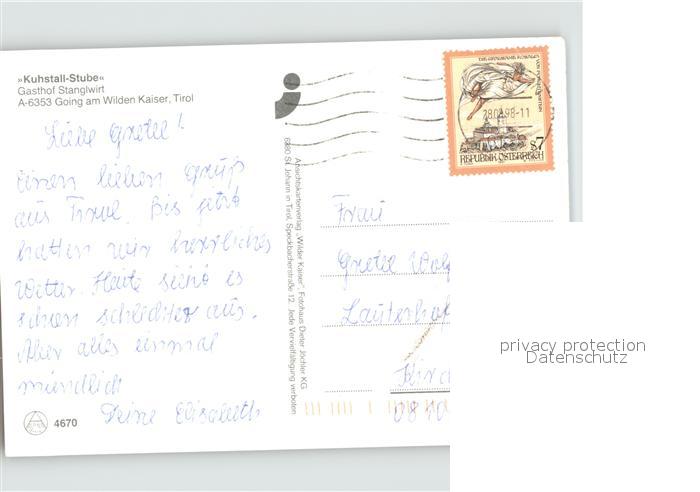 »Kuhstall-Stube«
Gasthof Stanglwirt
A-6353 Going am Wilden Kaiser, Tirol
Liebe Gretel!
Einen lieben Gruß
aus Tirol. Bis jetzt
hatten wir herrliches
Wetter. Heute sieht es
schon schlechter aus.
Aber alles einmal
mündlich
Deine Elisabeth
4670
Ansichtskartenverlag „Wilder Kaiser", Fotohaus Dieter Jöchler KG
6380 St. Johann in Tirol, Speckbacherstraße 12, Jede Vervielfältigung verboten
28.08.98-11
S 7
REPUBLIK ÖSTERREICH
Frau
Gretel
privacy protection
Datenschutz